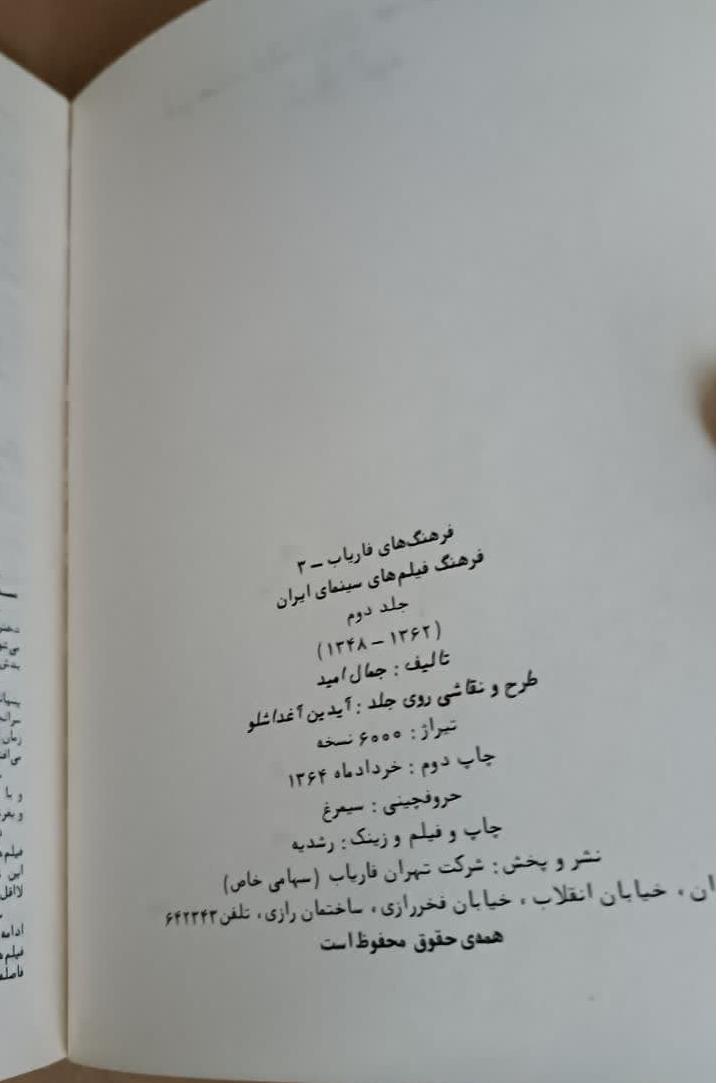 فرهنگ‌های فاریاب – ۳
فرهنگ فیلم‌های سینمای ایران
جلد دوم
(۱۳۶۲ – ۱۳۴۸)
تالیف : جمال امید
طرح و نقاشی روی جلد : آیدین آغداشلو
تیراژ : ۶۰۰۰ نسخه
چاپ دوم : خردادماه ۱۳۶۴
حروفچینی : سیمرغ
چاپ و فیلم و زینک : رشدیه
نشر و پخش : شرکت تهران فاریاب (سهامی خاص)
ان ، خیابان انقلاب ، خیابان فخررازی ، ساختمان رازی ، تلفن ۶۴۲۳۴۳
همه‌ی حقوق محفوظ است
و با
فیلم‌ه
این
لااقل
ادامه
فیلم‌ه
فاصله